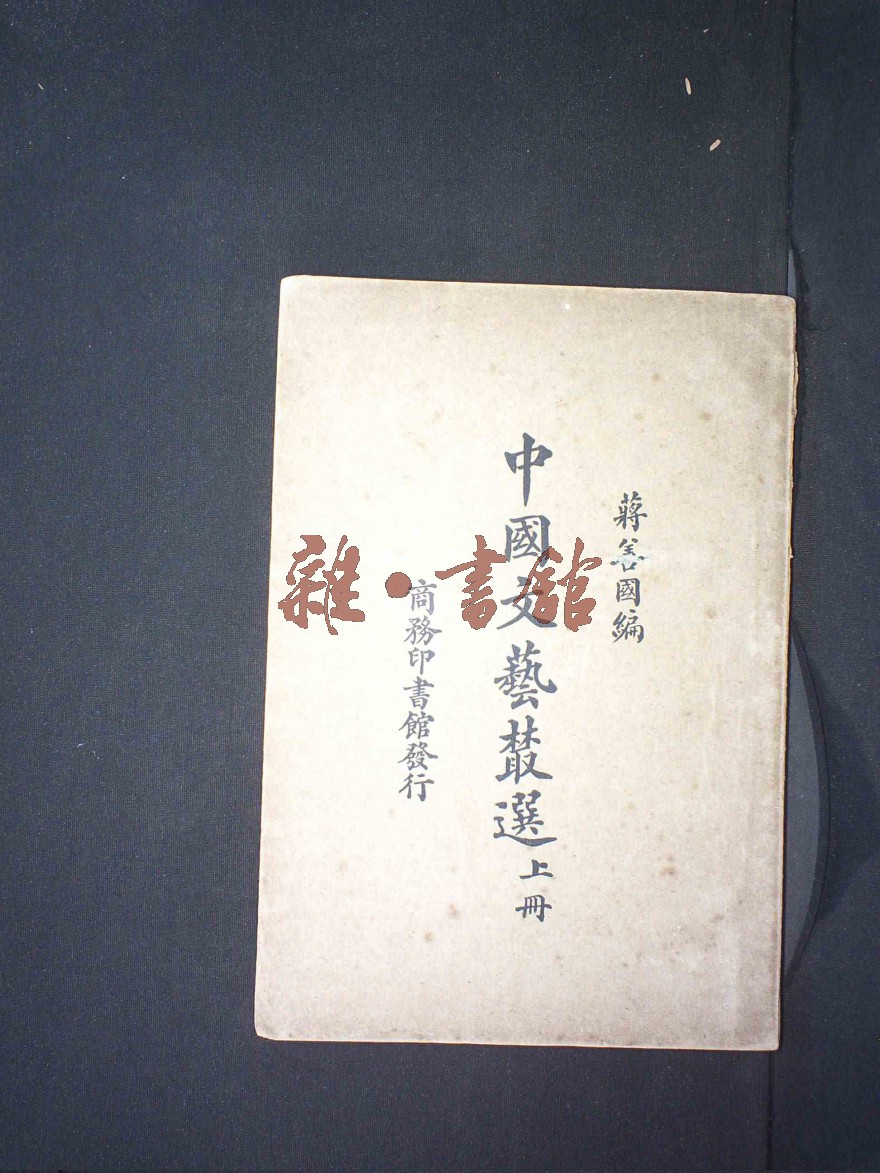 蔣善國編
中國文藝叢選上冊
商務印書館發行
雜·書館